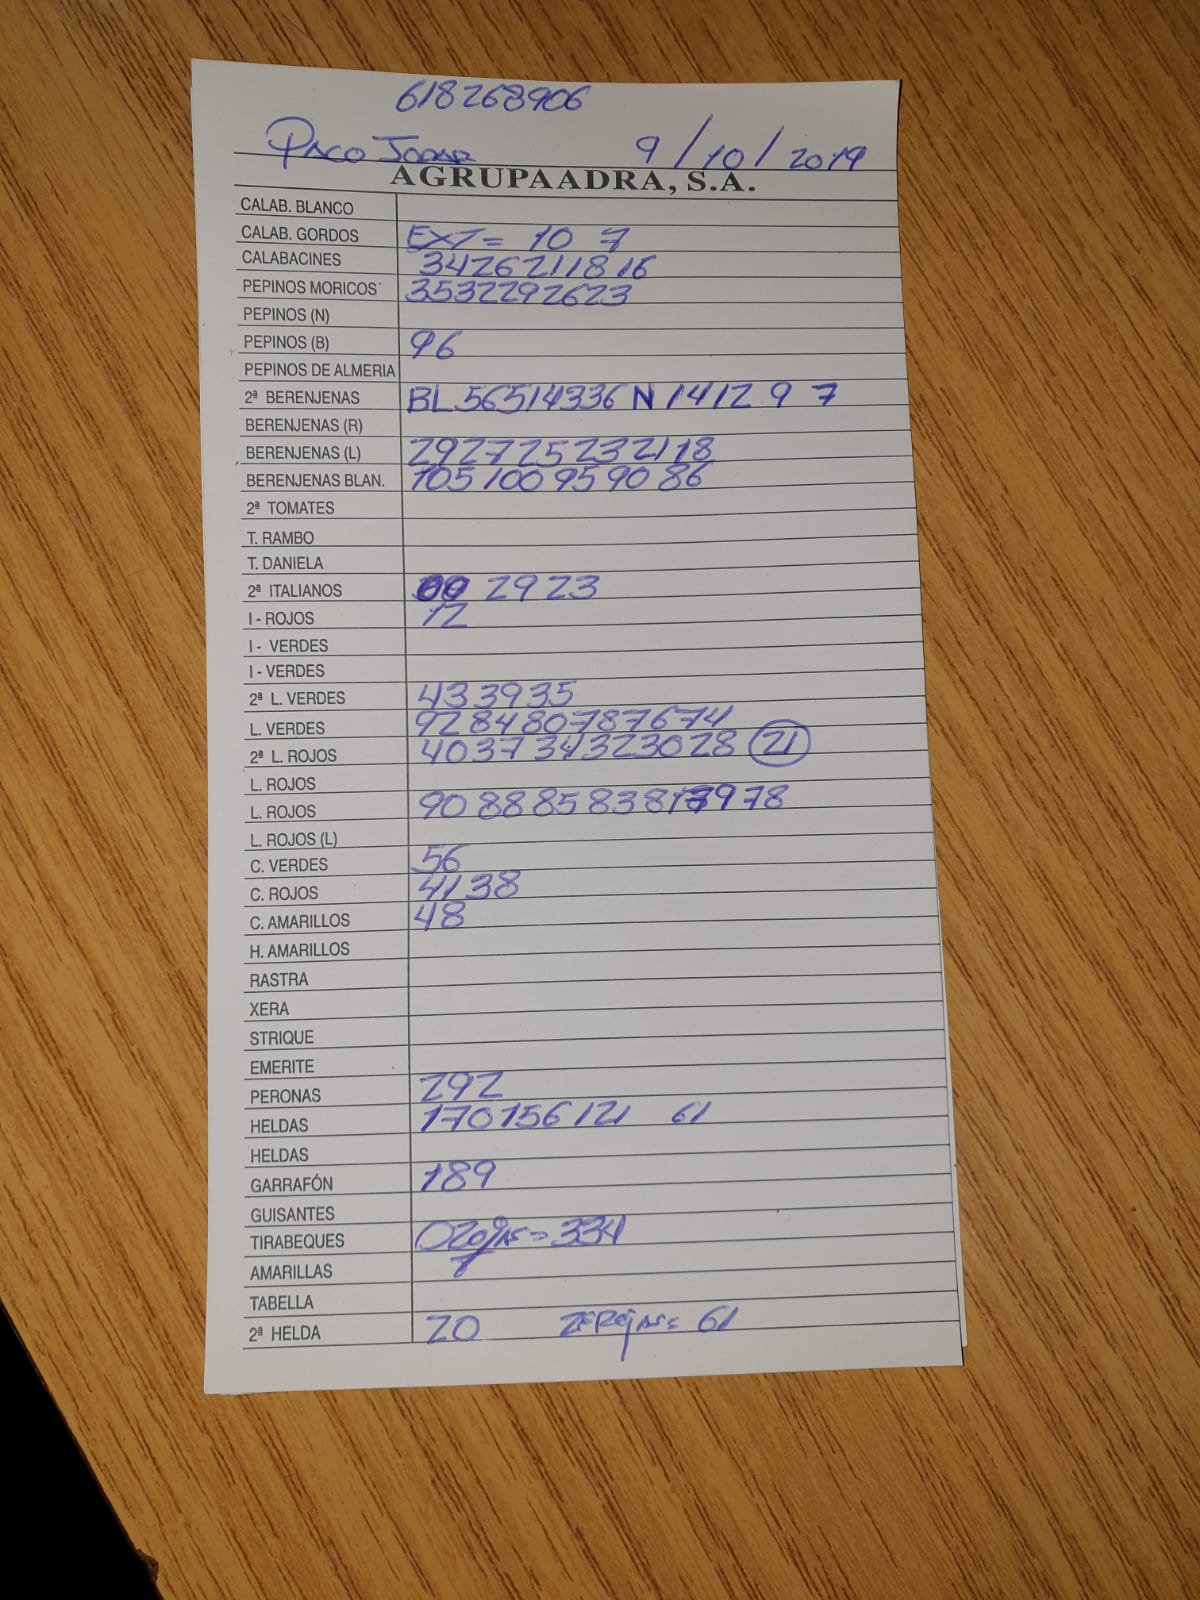 618268906
PACO JODAR 9/10/2019
AGRUPAADRA, S.A.
CALAB. BLANCO
CALAB. GORDOS EXT= 10 7
CALABACINES 3426211816
PEPINOS MORICOS 3532292623
PEPINOS (N)
PEPINOS (B) 96
PEPINOS DE ALMERIA
2ª BERENJENAS BL56514336 N 1412 9 7
BERENJENAS (R)
BERENJENAS (L) 292725232118
BERENJENAS BLAN. 105 100 95 90 86
2ª TOMATES
T. RAMBO
T. DANIELA
2ª ITALIANOS 29 23
I - ROJOS 12
I - VERDES
I - VERDES
2ª L. VERDES 433935
L. VERDES 928480787674
2ª L. ROJOS 403734323028 21
L. ROJOS
L. ROJOS 90888583817978
L. ROJOS (L)
C. VERDES 56
C. ROJOS 4138
C. AMARILLOS 48
H. AMARILLOS
RASTRA
XERA
STRIQUE
EMERITE
PERONAS 292
HELDAS 170156121 61
HELDAS
GARRAFÓN 189
GUISANTES
TIRABEQUES =334
AMARILLAS
TABELLA
2ª HELDA 20 = 61